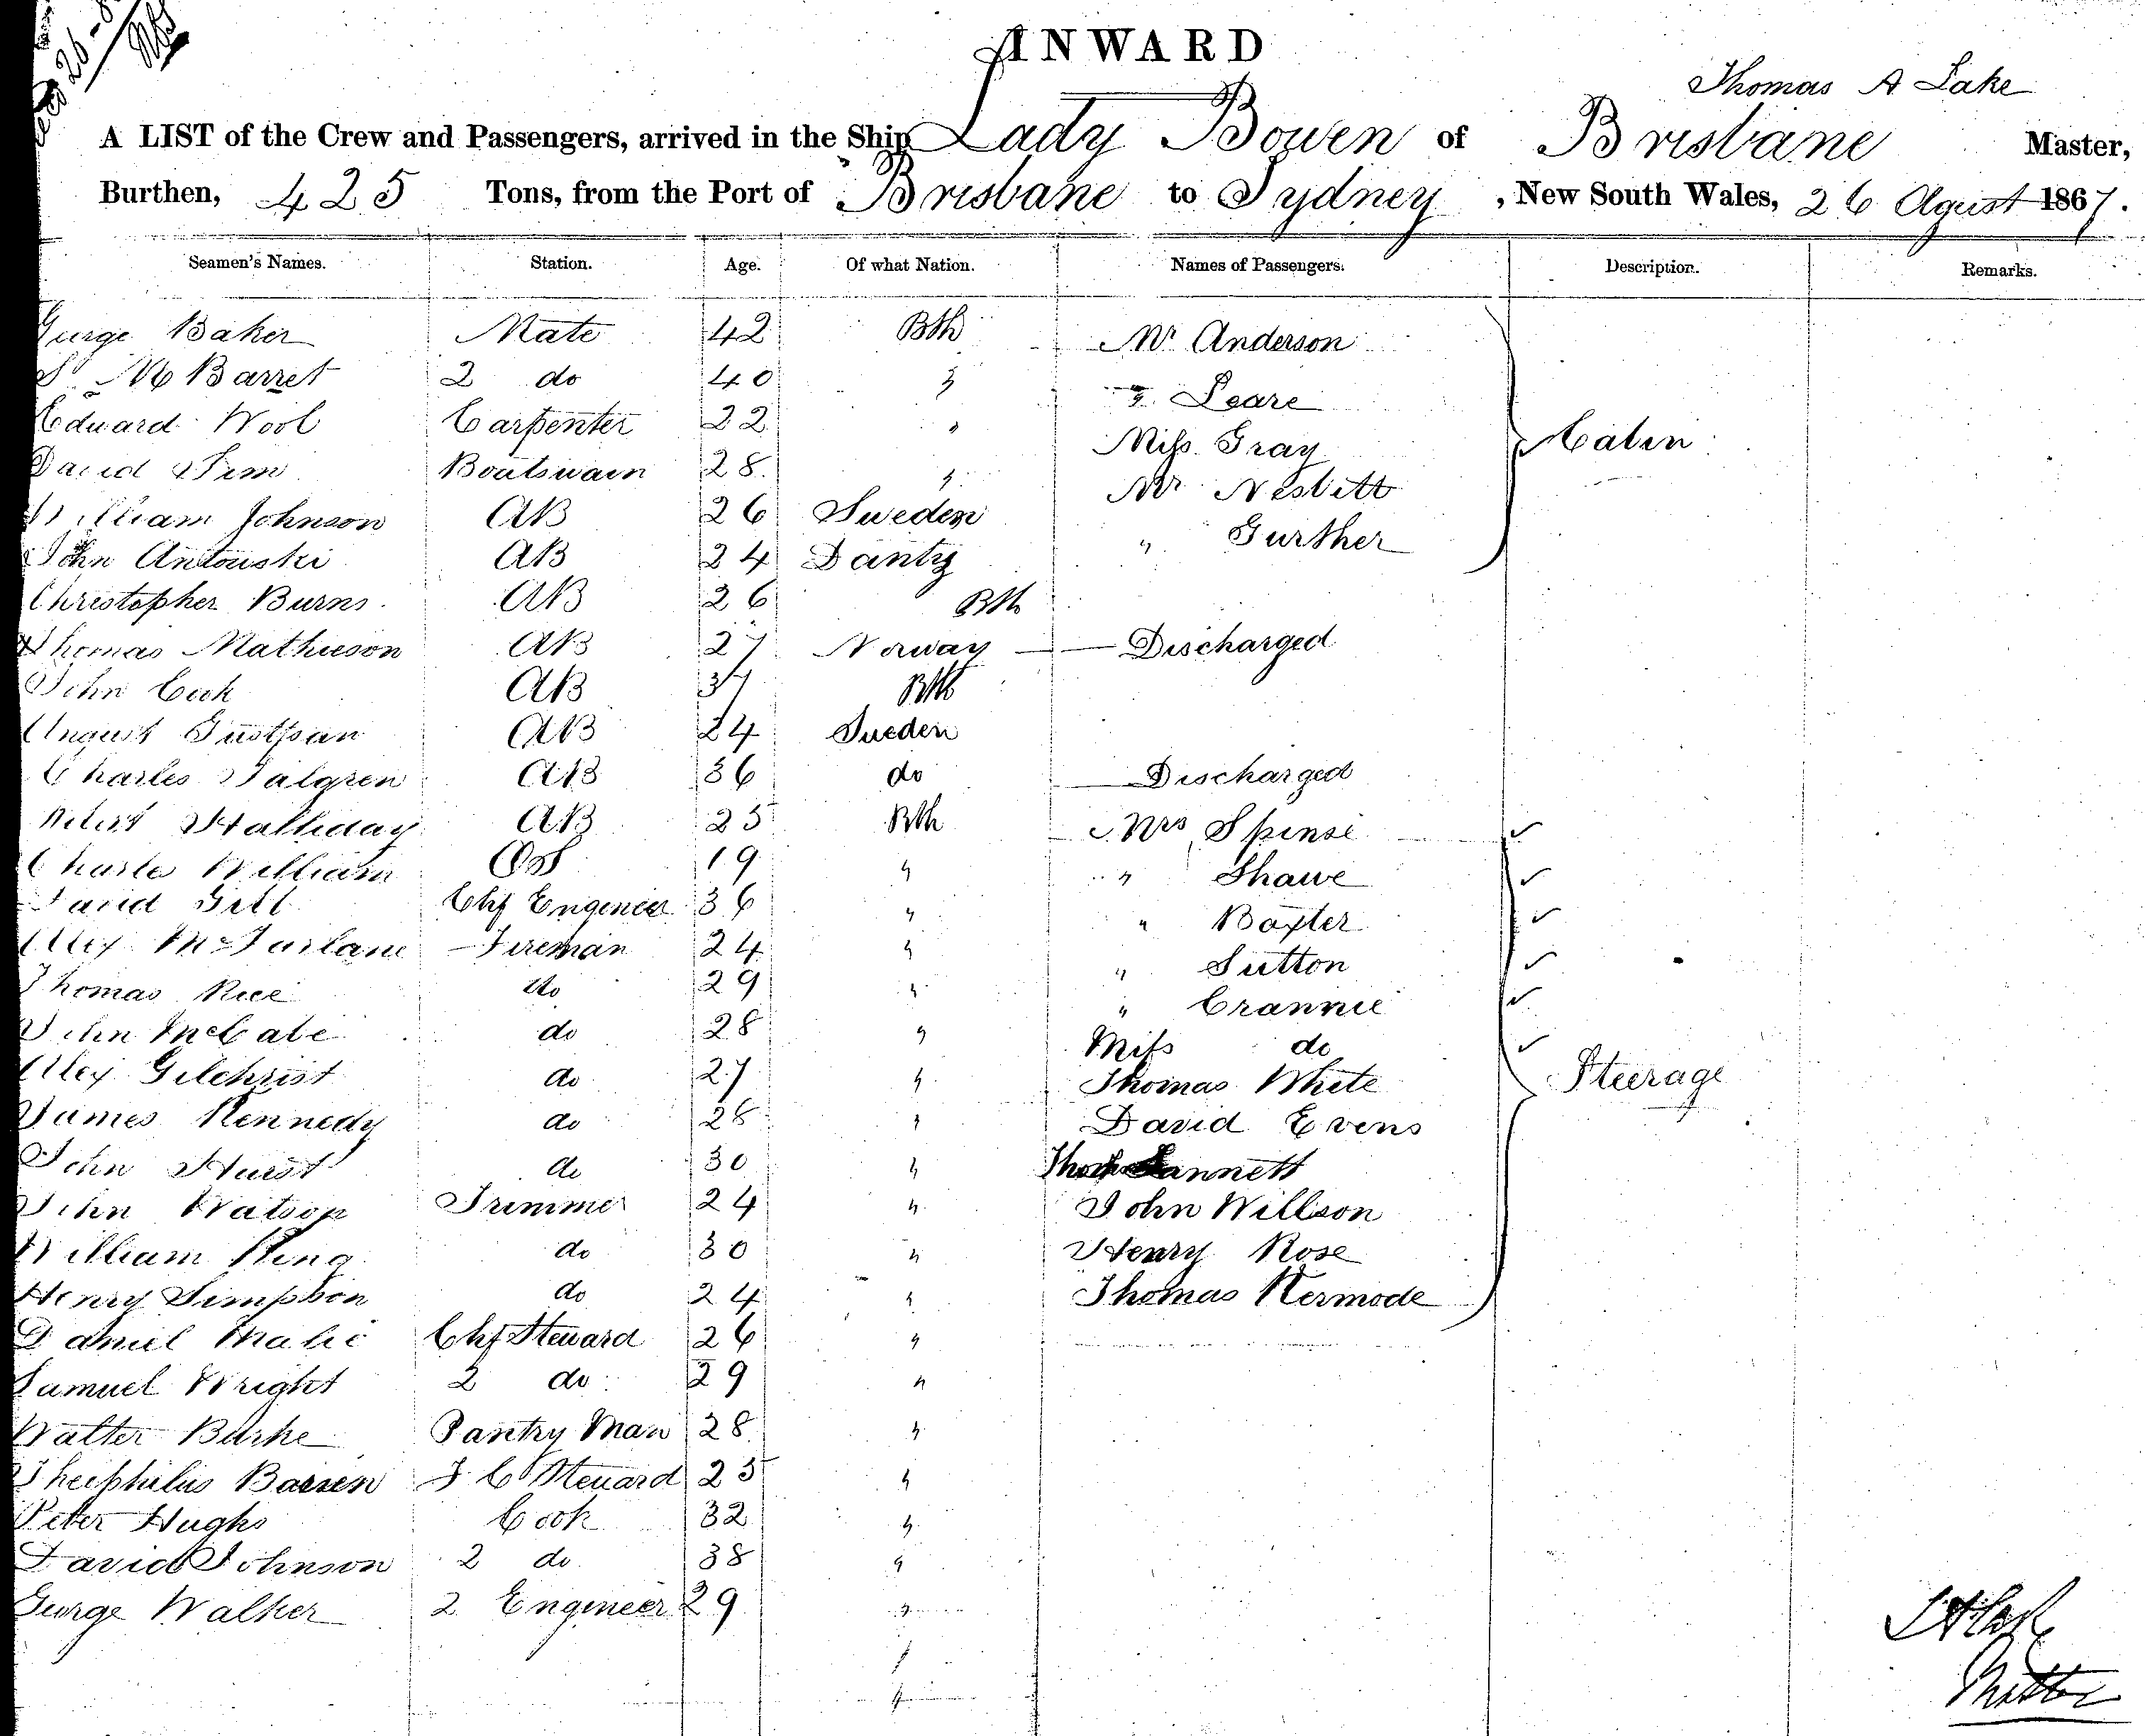 INWARD
Thomas A Lake
A LIST of the Crew and Passengers, arrived in the Ship Lady Bowen of Brisbane Master,
Burthen, 425 Tons, from the Port of Brisbane to Sydney, New South Wales, 26 Agust 1867.
Seamen's Names. Station. Age. Of what Nation. Names of Passengers. Description. Remarks.
Gurge Baker Mate 42 Bth Mr Anderson
Barret 2 do 40 " " Leare
Edward Wool Carpenter 22 " Miss Gray Cabin
David Sim Boatswain 28 " Mr Nesbitt
William Johnson AB 26 Sweden " Gurther
John Antouski AB 24 Dantz
Christopher Burns AB 26 Bth
Thomas Mathieson AB 27 Norway Discharged
John Cook AB 37 Bth
August Gustfsan AB 24 Sueden
Charles Falgren AB 36 do Discharged
Robert Halliday AB 25 Bth Mrs Spinse
Charles William OS 19 " " Shawe
David Gill Chf Engineer 36 " " Baxter
Alex McFarlane Fireman 24 " " Sutton
Thomas Rice do 29 " " Crannie
John McCabe do 28 " Miss do
Alex Gilchrist do 27 " Thomas White Steerage
James Kennedy do 28 " David Evens
John Hurst do 30 " Thos Lannett
John Watson Trimmer 24 " John Willson
William King do 30 " Henry Rose
Henry Simpson do 24 " Thomas Kermode
Daniel Mahe Chf Steward 26 "
Samuel Wright 2 do 29 "
Walter Burke Pantry Man 28 "
Theiphilus Barren F C Steward 25 "
Peter Hughs Cook 32 "
David Johnson 2 do 38 "
Gurge Walker 2 Engineer 29 "
Master